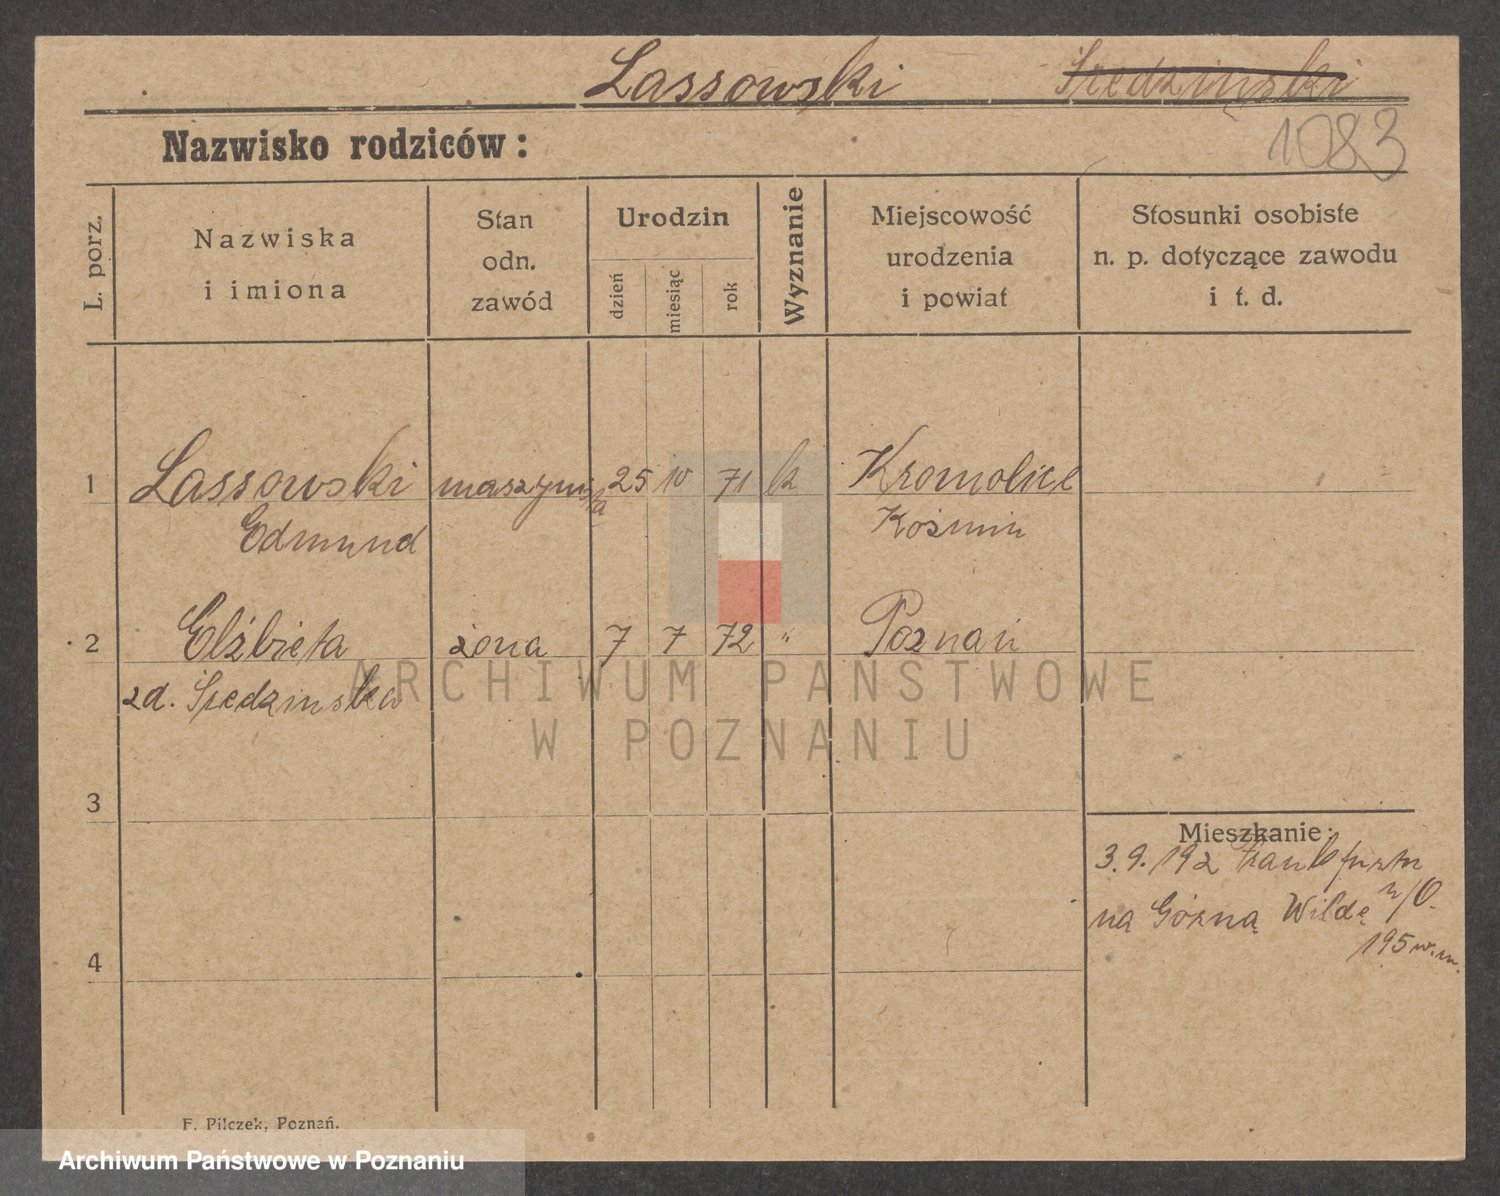 Lassowski Sredzinski
1083
Nazwisko rodziców:
L. porz.
Nazwiska
i imiona
Stan
odn.
zawód
Urodzin
dzień
miesiąc
rok
Wyznanie
Miejscowość
urodzenia
i powiat
Stosunki osobiste
n. p. dotyczące zawodu
i t. d.
1 Lassowski maszynista 25 10 71 k Kromolice
Edmund Koźmin
2 Elżbieta żona 7 7 72 " Poznań
zd. Sredzinska
ARCHIWUM PAŃSTWOWE
W POZNANIU
3
Mieszkanie:
3.9.192 Frankfurtu
n/O.
na Górną Wildę
195 w.m.
4
F. Pilczek, Poznań.
Archiwum Państwowe w Poznaniu